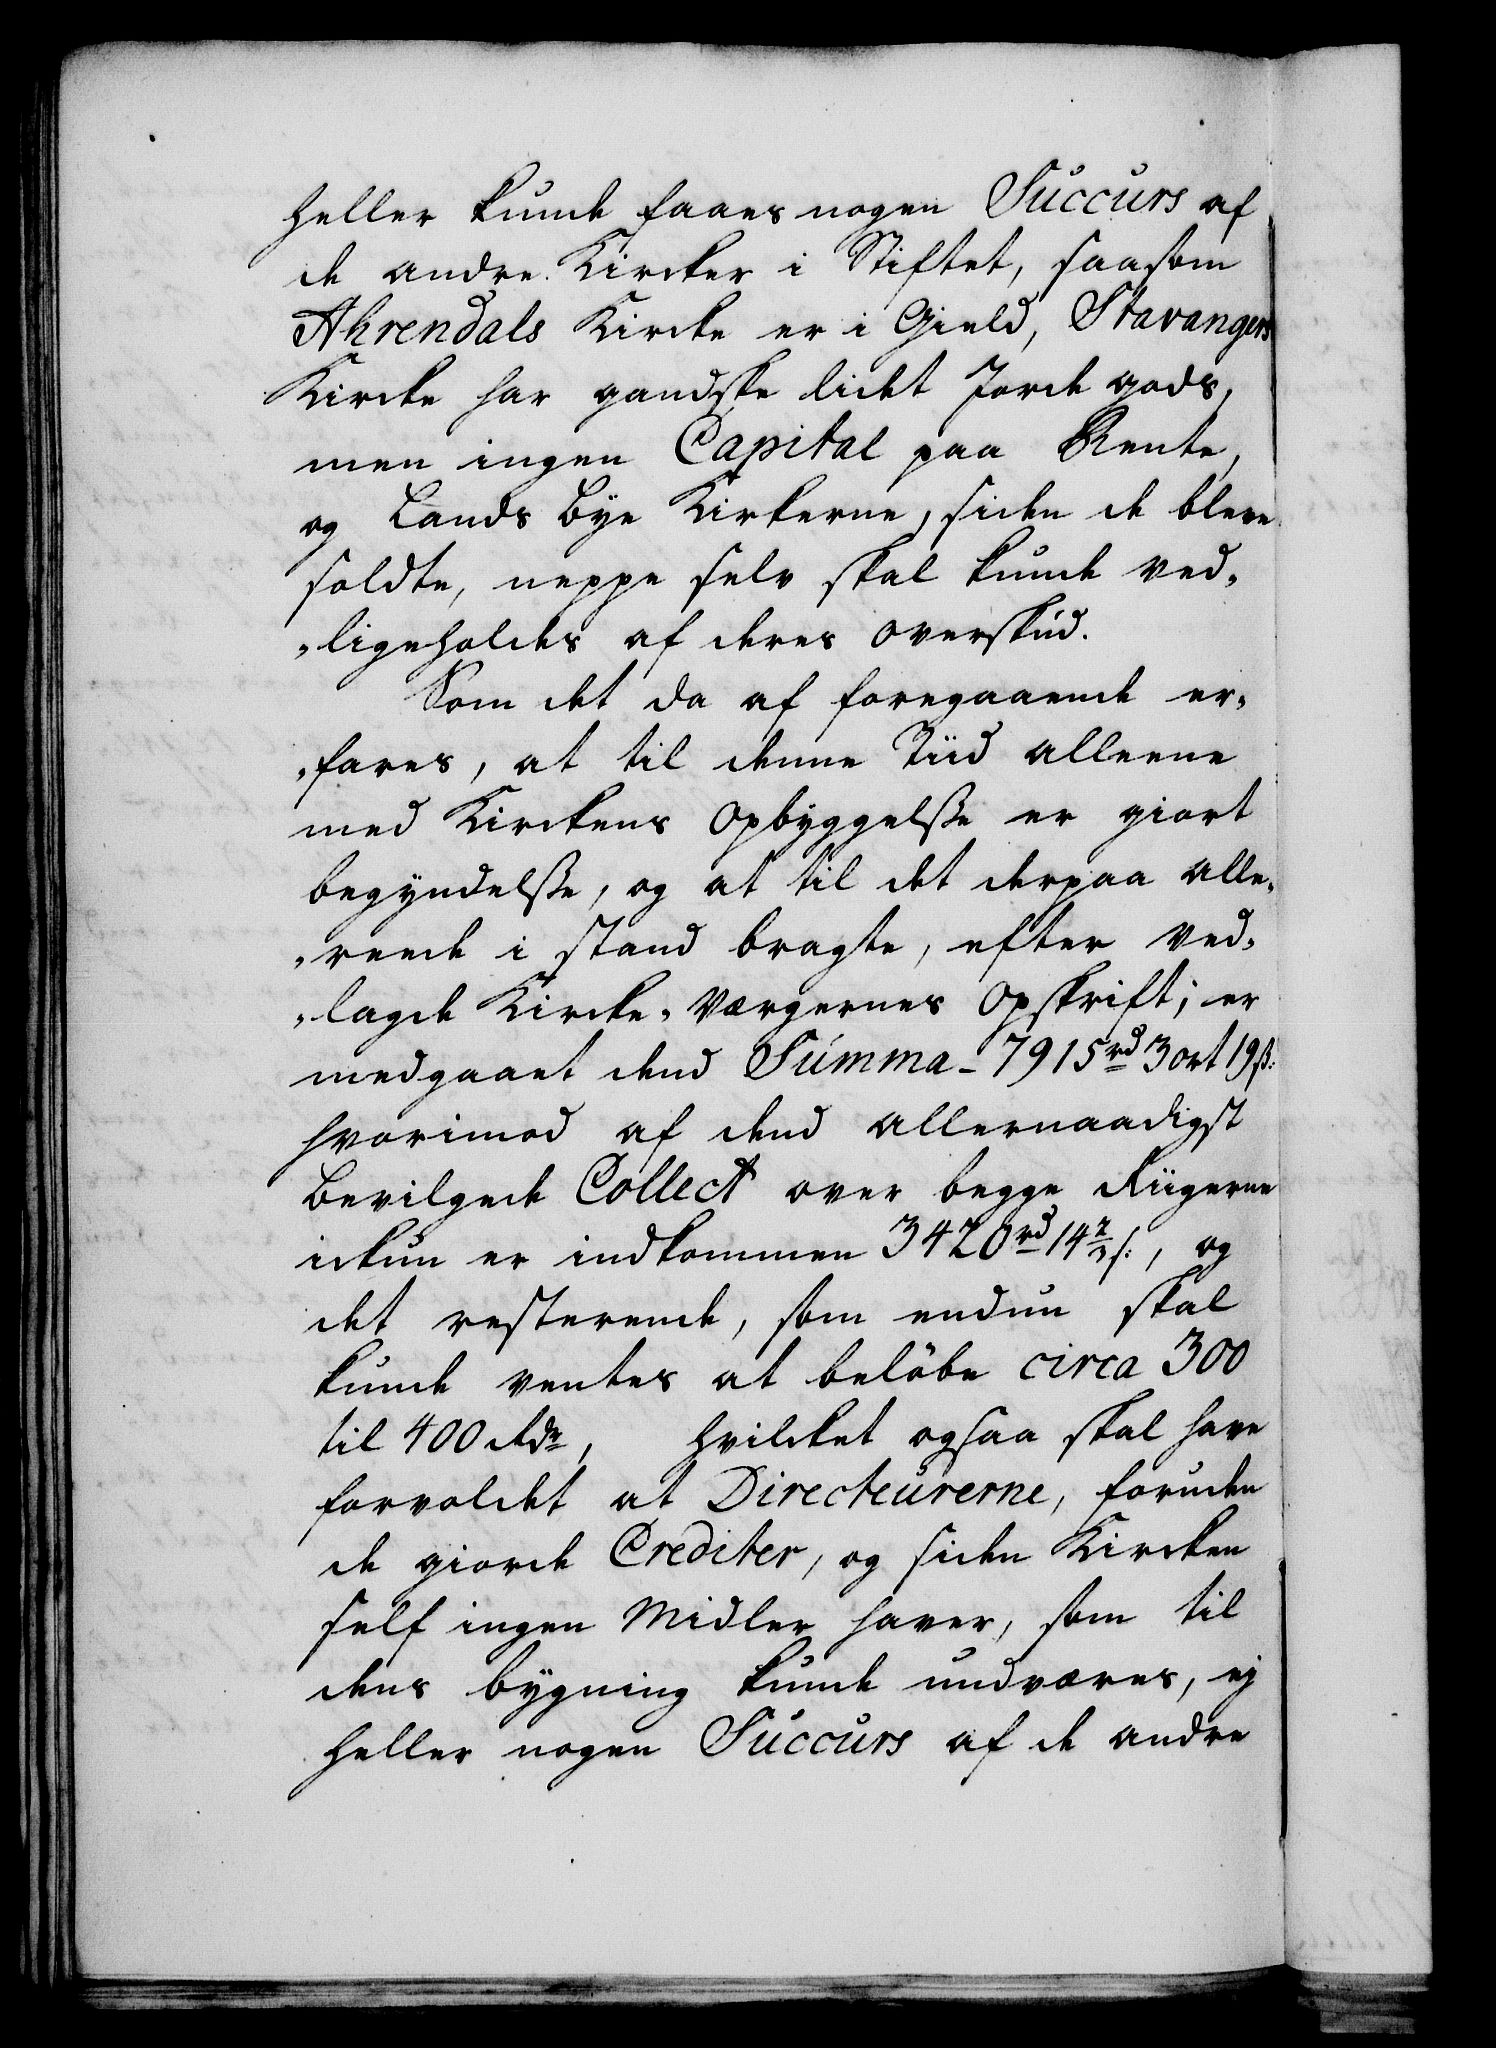 heller kunde faaes nogen Succurs af
de andre Kircker i Stiftet, saasom
Ahrendals Kircke er i Gield, Stavangers
Kircke har gandske lidet Jorde gods,
men ingen Capital paa Rente,
og Lands bye Kirkerne, siden de bleve
soldte, neppe selv skal kunde ved-
-ligeholdes af deres overskud.
Som det da af foregaaende er-
-fares, at til denne Tiid alleene
med Kirckens Opbyggelsse er giort
begyndelsse, og at til det derpaa alle-
-reede i stand bragte, efter ved-
-lagde Kircke-Værgernes Opskrift; er
medgaaet dend Summa - 7915 rd 3 ort 19 ß:
hvorimod af dend allernaadigst
bevilgede Collect over begge Riigerne
ickun er indkommen 3420 rd 14 2/3 s:, og
det resterende, som endnu skal
kunde ventes at beløbe circa 300
til 400 Rdr, hvilcket ogsaa skal have
forvoldet at Directeurerne, foruden
de giorde Crediter, og siden Kircken
self ingen Midler haver, som til
dens bygning kunde undværes, ej
heller nogen Succurs af de andre